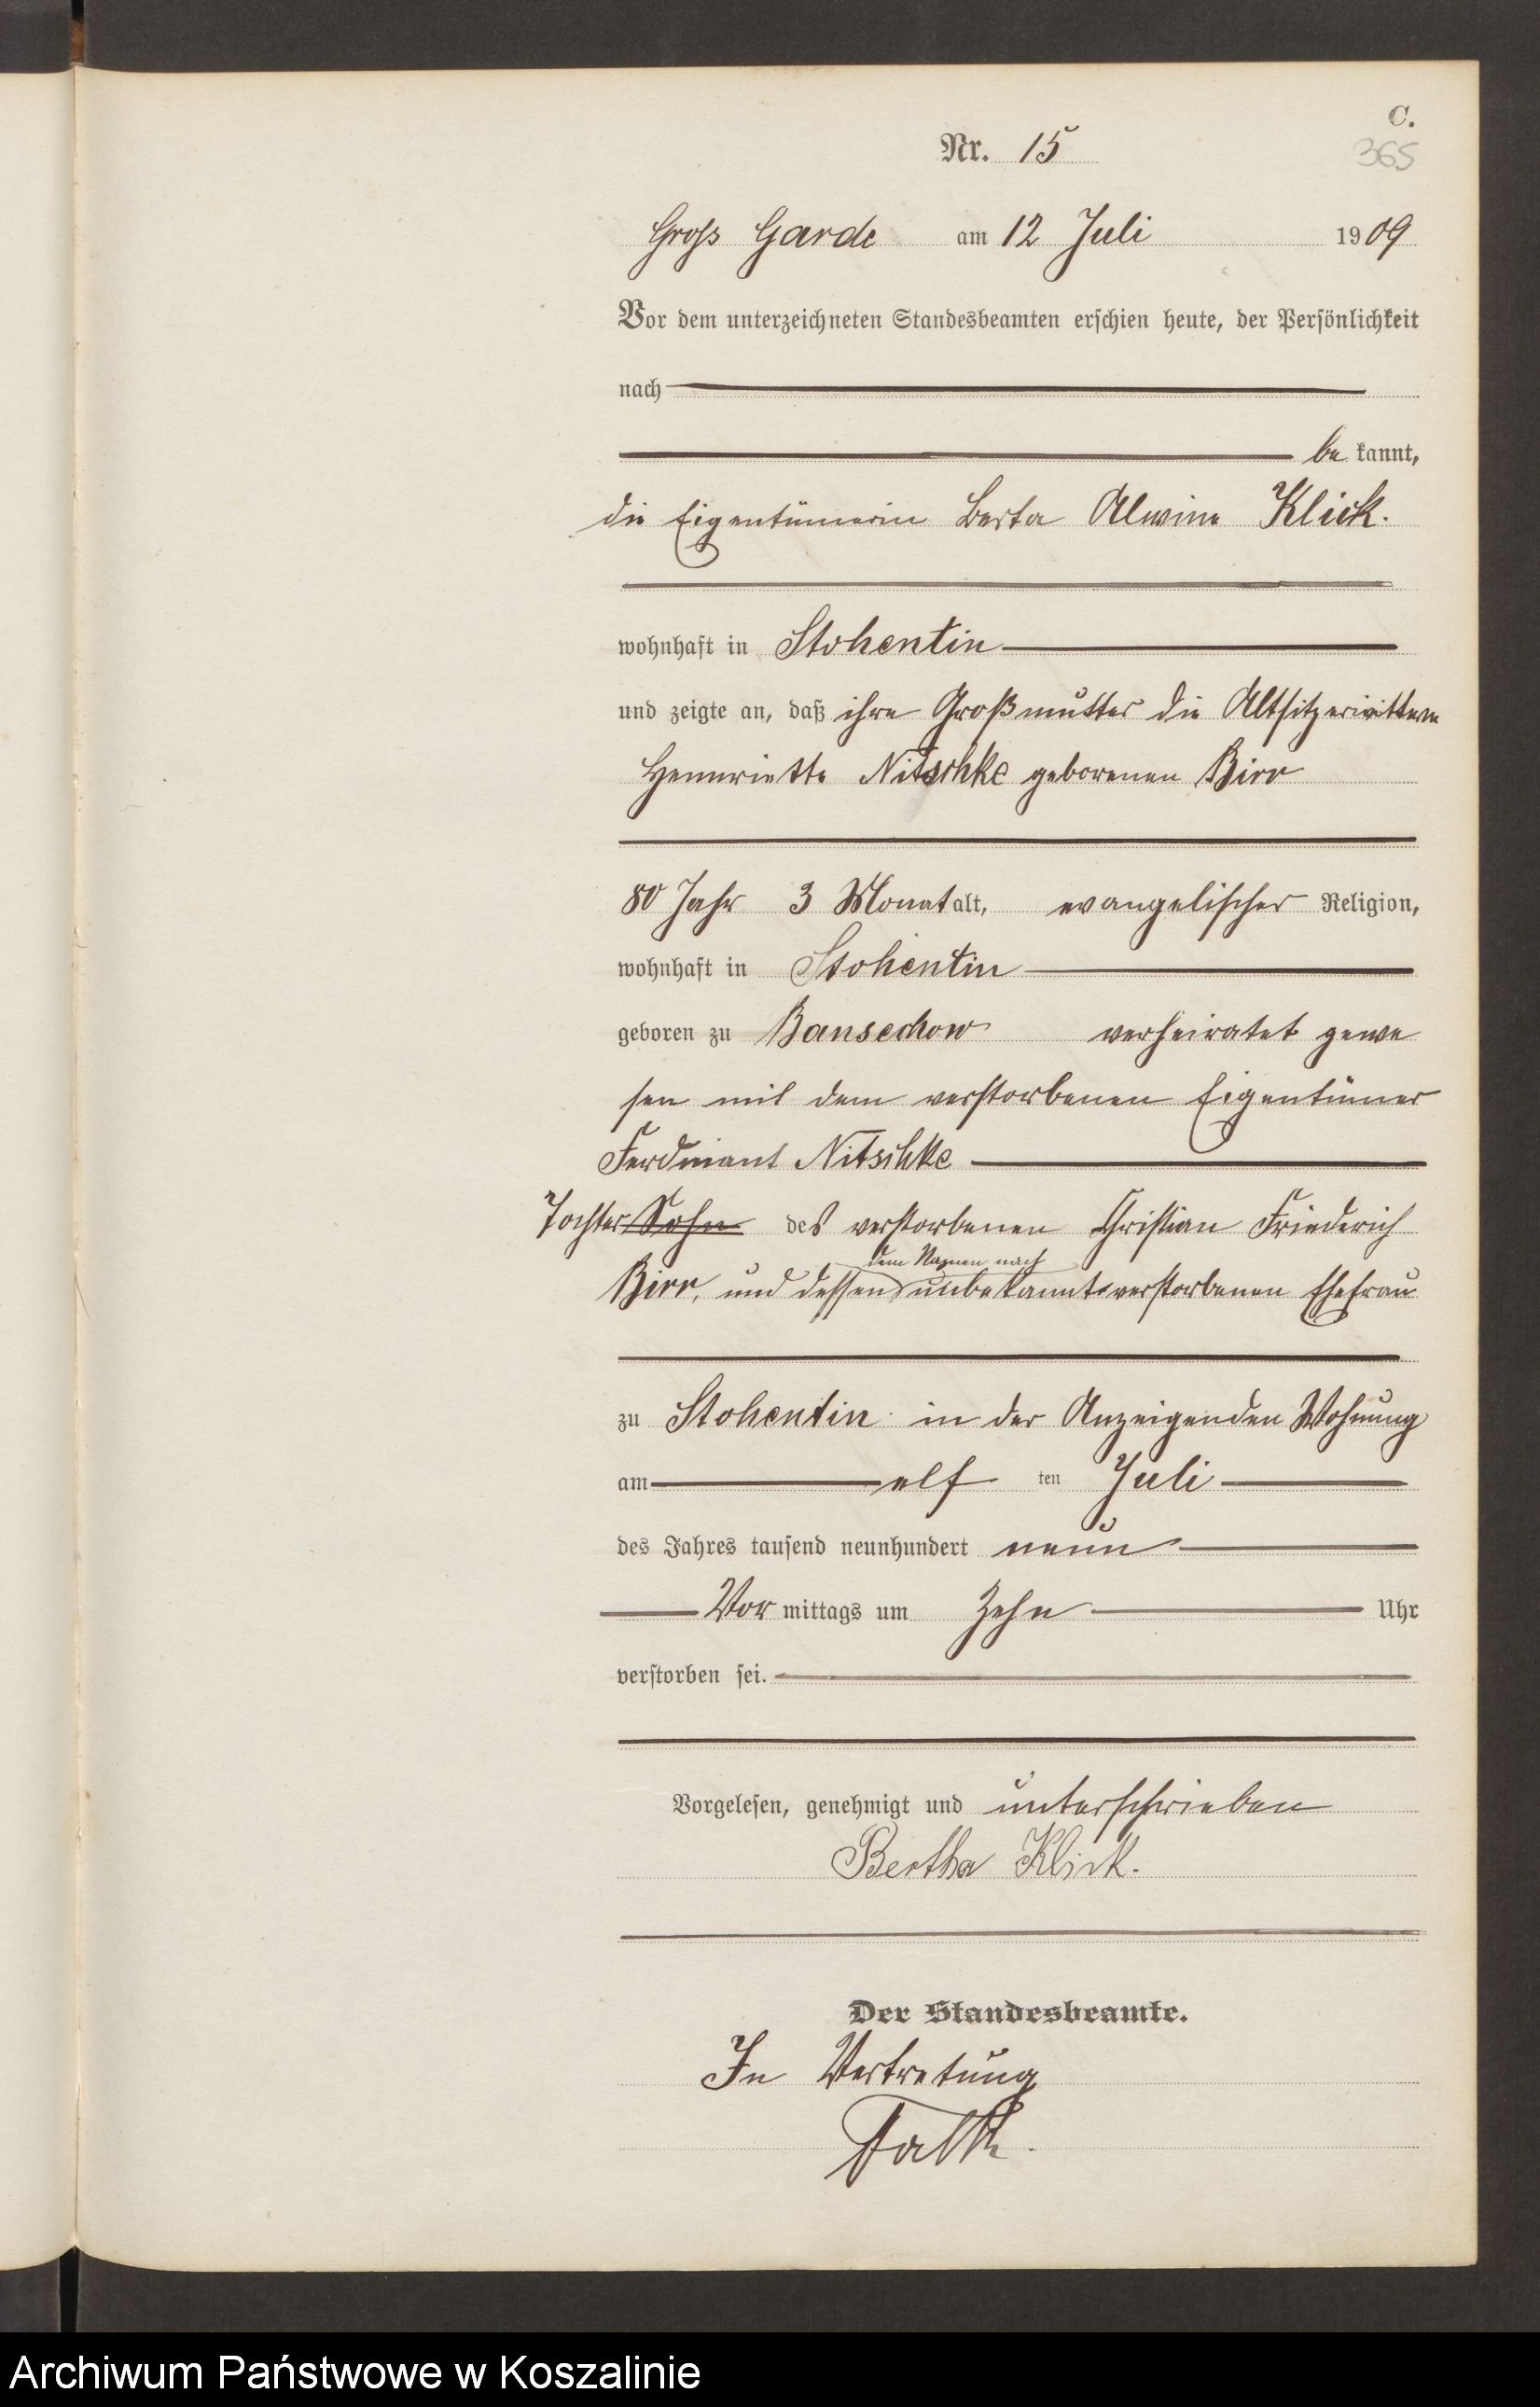 C.
Nr. 15
365
Gross Garde am 12 Juli 1909
Vor dem unterzeichneten Standesbeamten erschien heute, der Persönlichkeit
nach
be kannt,
die Eigentümerin Berta Alwine Klick.
wohnhaft in Stohentin
und zeigte an, daß ihre Großmutter die
Hennriette Nitschke geborenen Birr
80 Jahr 3 Monat alt, evangelischer Religion,
wohnhaft in Stohentin
geboren zu Bansechow verheiratet gewe
sen mit dem verstorbenen Eigentümer
Ferdinant Nitschke
Tochter Sohn des verstorbenen Christian Friederich
dem Namen nach
Birr, und dessen unbekannt verstorbenen Ehefrau
zu Stohentin in der Anzeigenden Wohnung
am elf ten Juli
des Jahres tausend neunhundert neun
Vor mittags um Zehn Uhr
verstorben sei.
Vorgelesen, genehmigt und unterschrieben
Bertha Klick.
Der Standesbeamte.
In Vertretung
Falk.
Archiwum Państwowe w Koszalinie